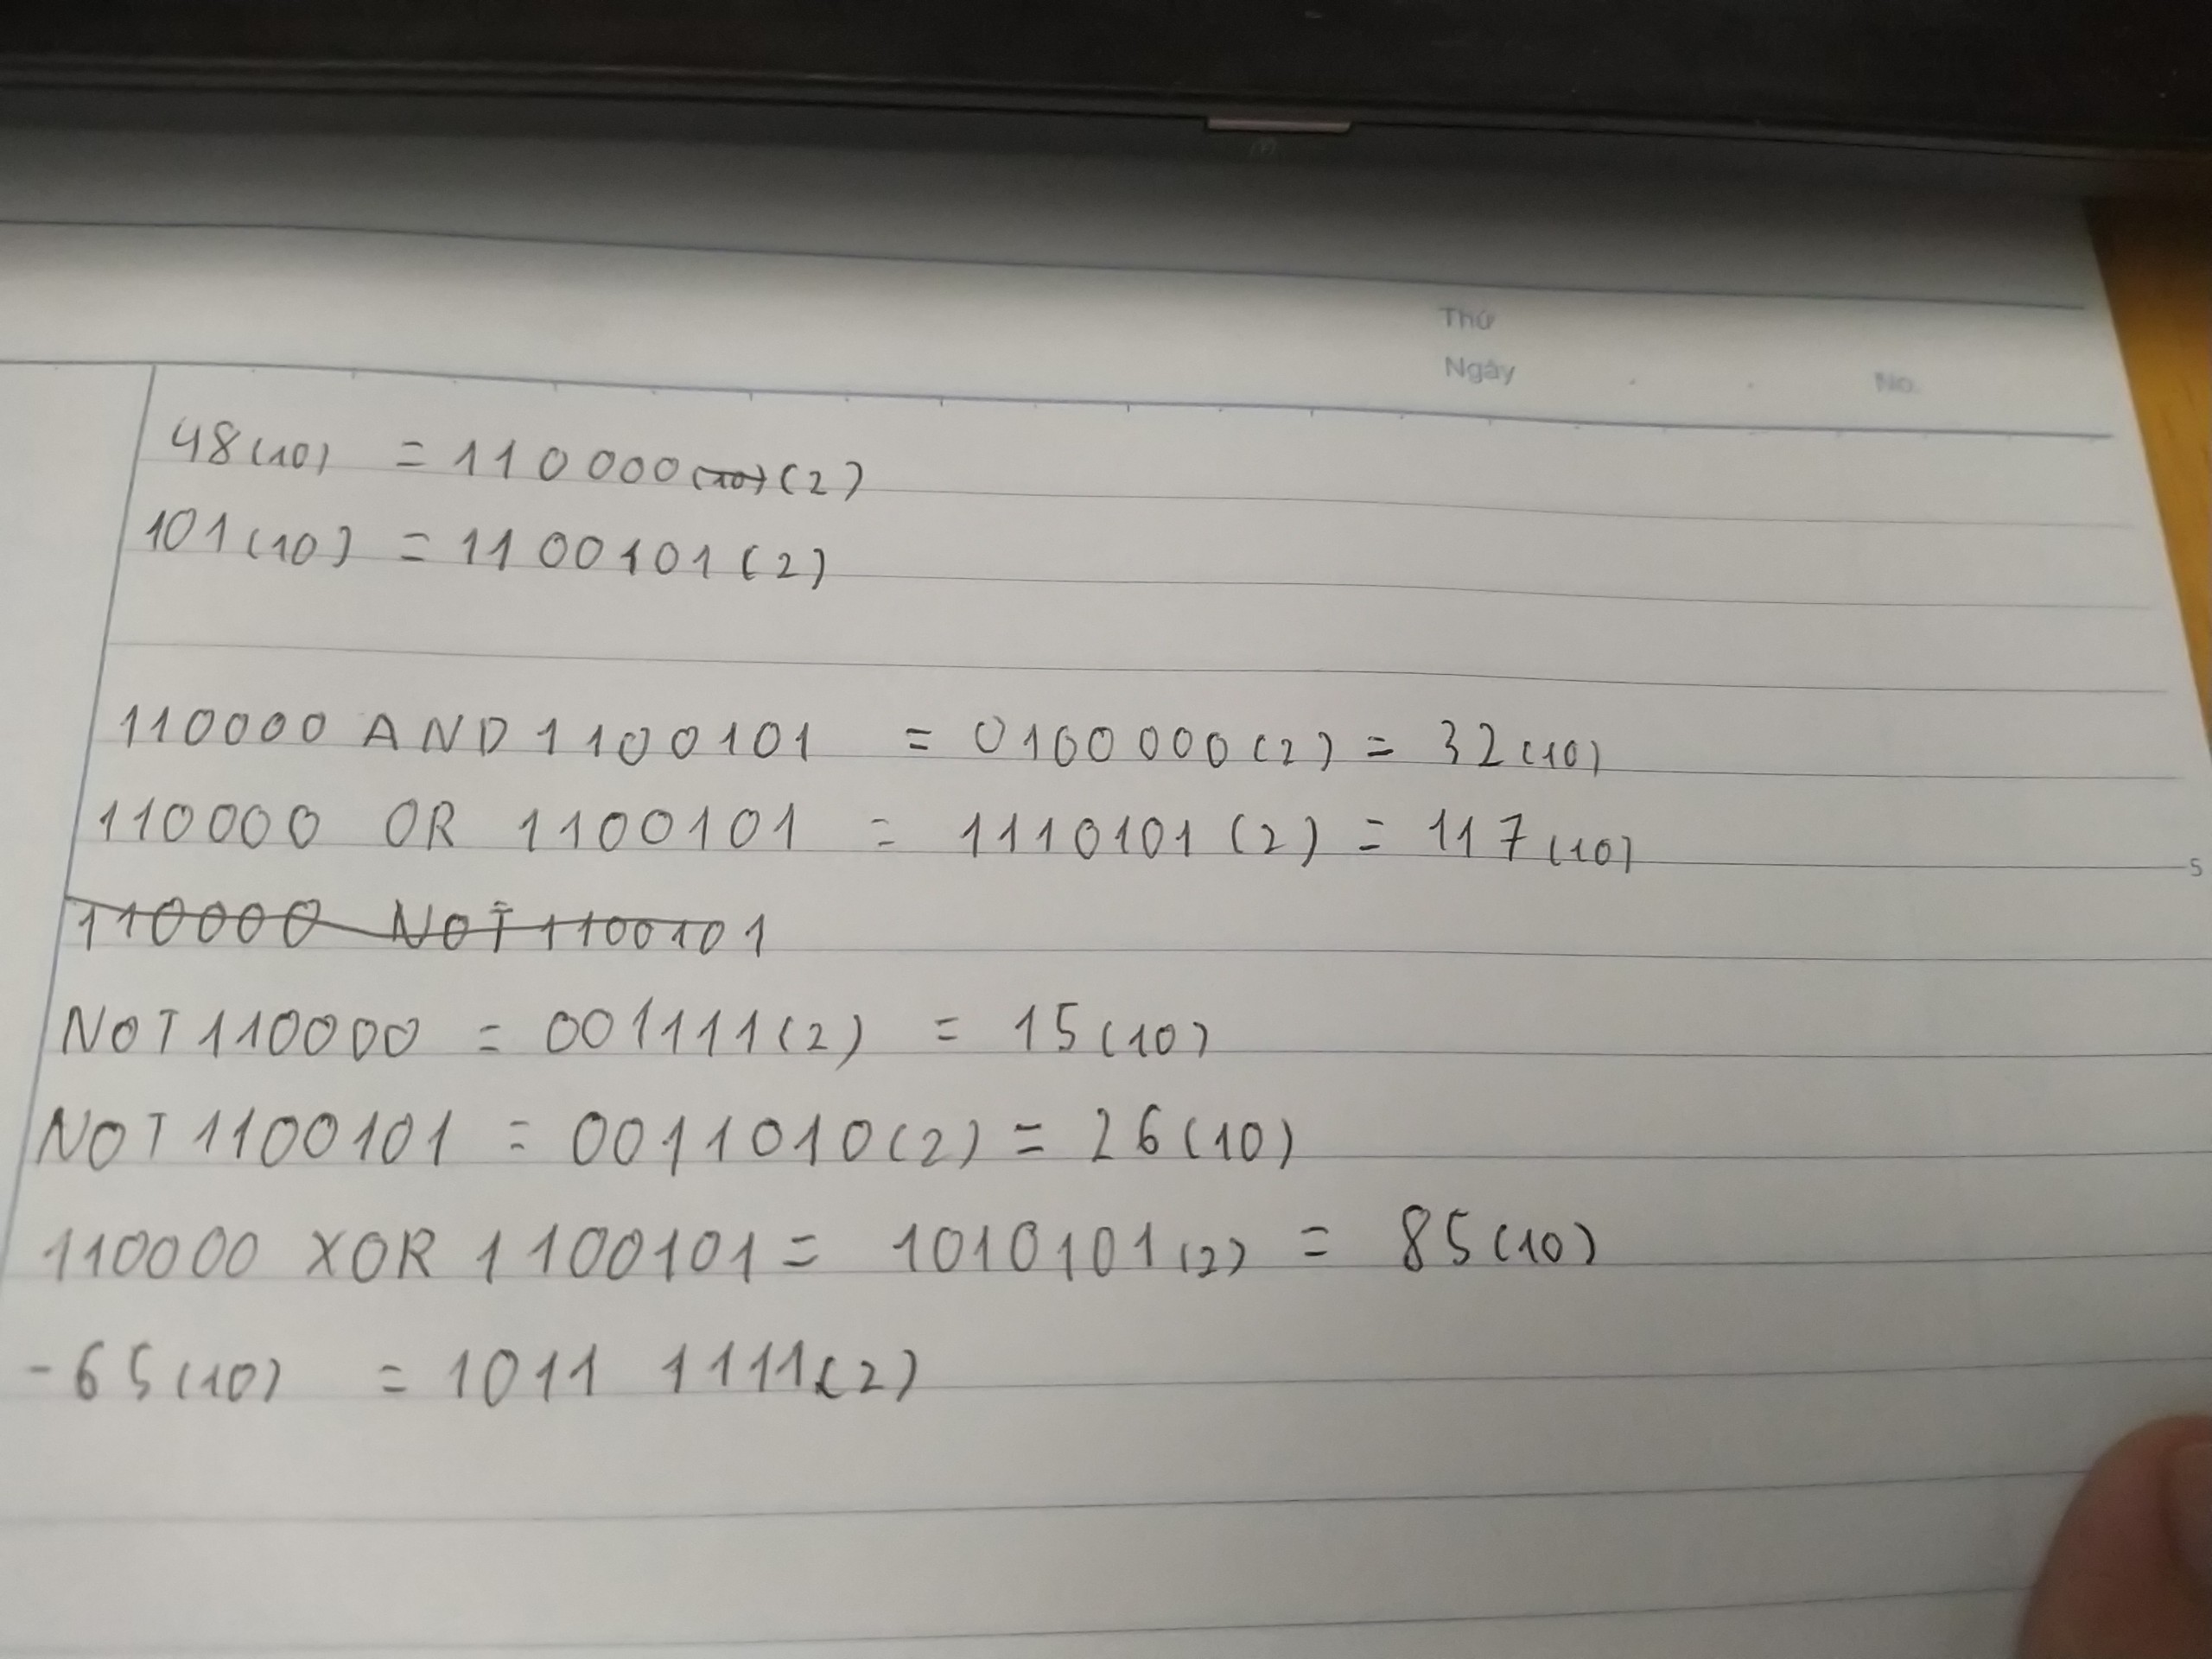 Thứ
Ngày No.
48(10) = 110000(10)(2)
101(10) = 1100101(2)
110000 AND 1100101 = 0100000(2) = 32(10)
110000 OR 1100101 = 1110101(2) = 117(10)
5
110000 NOT 1100101
NOT 110000 = 001111(2) = 15(10)
NOT 1100101 = 0011010(2) = 26(10)
110000 XOR 1100101 = 1010101(2) = 85(10)
-65(10) = 1011 1111(2)